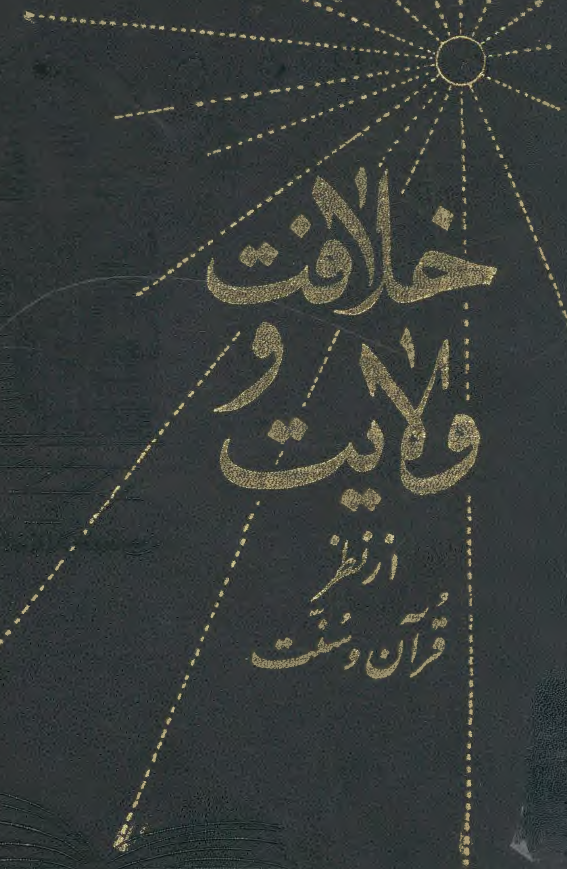 خلافت
و
ولایت
از نظر
قُرآن و سُنّت